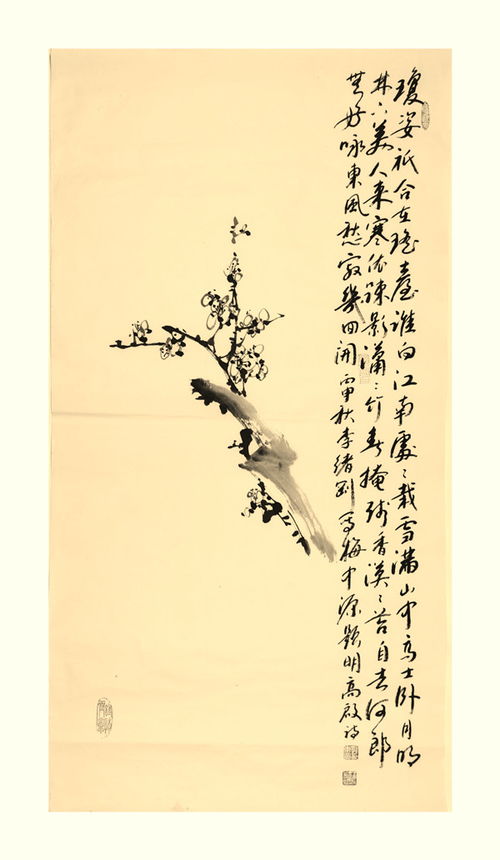 瓊姿祇合在瑤臺誰向江南處〻栽雪滿山中高士卧月明
林下美人来寒依疎影瀟〻竹春掩殘香漠〻苔自去何郎
無好咏東風愁寂幾回開丙申秋李緒剛寫梅中源題明高啟詩